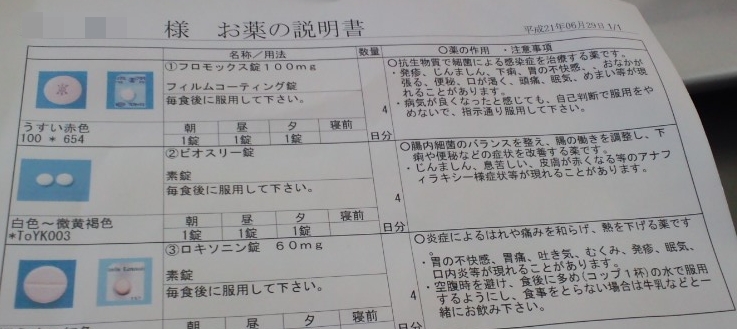 様 お薬の説明書
平成21年06月29日 1/1
名称／用法
数量
○薬の作用 ・注意事項
①フロモックス錠１００ｍｇ
フィルムコーティング錠
毎食後に服用して下さい。
うすい赤色
100 * 654
朝 昼 夕 寝前
1錠 1錠 1錠
4
日分
○抗生物質で細菌による感染症を治療する薬です。
・発疹、じんましん、下痢、胃の不快感、。おなかが
張る、便秘、口が渇く、頭痛、眠気、めまい等が現
れることがあります。
・病気が良くなったと感じても、自己判断で服用をや
めないで、指示通り服用して下さい。
②ビオスリー錠
素錠
毎食後に服用して下さい。
白色～微黄褐色
*ToYK003
朝 昼 夕 寝前
1錠 1錠 1錠
4
日分
○腸内細菌のバランスを整え、腸の働きを調整し、下
痢や便秘などの症状を改善する薬です。
・じんましん、息苦しい、皮膚が赤くなる等のアナフ
ィラキシー様症状等が現れることがあります。
③ロキソニン錠 ６０ｍｇ
素錠
毎食後に服用して下さい。
朝 昼 夕 寝前
4
日分
○炎症によるはれや痛みを和らげ、熱を下げる薬です
。
・胃の不快感、胃痛、吐き気、むくみ、発疹、眠気、
口内炎等が現れることがあります。
・空腹時を避け、食後に多め(コップ１杯)の水で服用
するようにし、食事をとらない場合は牛乳などと一
緒にお飲み下さい。